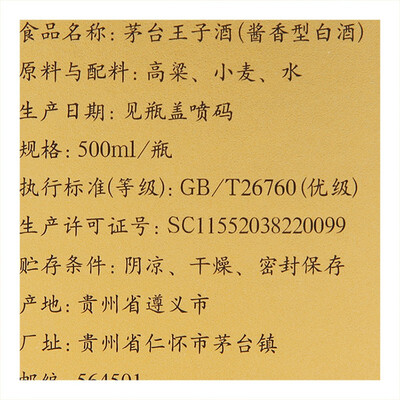 食品名称: 茅台王子酒(酱香型白酒)
原料与配料: 高粱、小麦、水
生产日期: 见瓶盖喷码
规格: 500ml/瓶
执行标准(等级): GB/T26760(优级)
生产许可证号: SC11552038220099
贮存条件: 阴凉、干燥、密封保存
产地: 贵州省遵义市
厂址: 贵州省仁怀市茅台镇
邮编: 564501